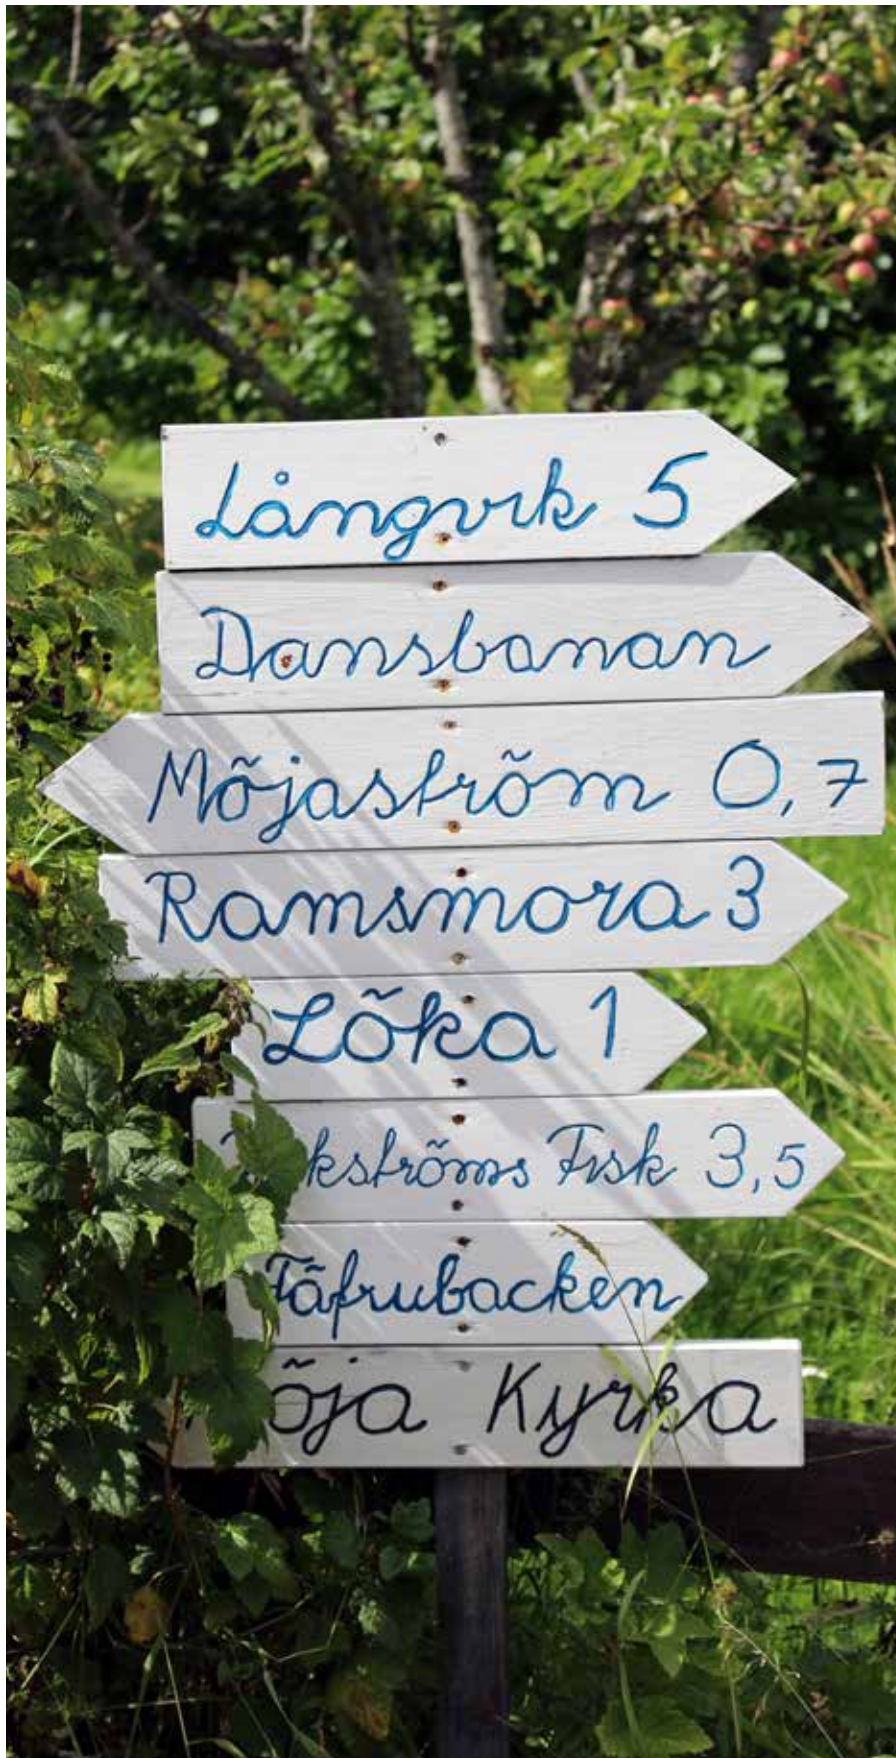 Långvik 5
Dansbanan
Möjaström 0,7
Ramsmora 3
Löka 1
kströms Fisk 3,5
Fäfrubacken
öja Kyrka